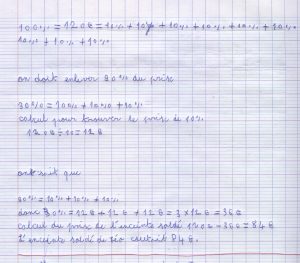 100% = 120€ = 10% + 10% + 10% + 10% + 10% + 10% + 10%
10% + 10% + 10%
on doit enlever 30% du prix
30% = 10% + 10% + 10%
calcul pour trouver le prix de 10%
120€ ÷ 10 = 12€
on sait que
30% = 10% + 10% + 10%
donc 30% = 12€ + 12€ + 12€ = 3 × 12€ = 36€
calcul du prix de l'enceinte soldé 120€ - 36€ = 84€
L'enceinte soldé de Léo coûtait 84€.